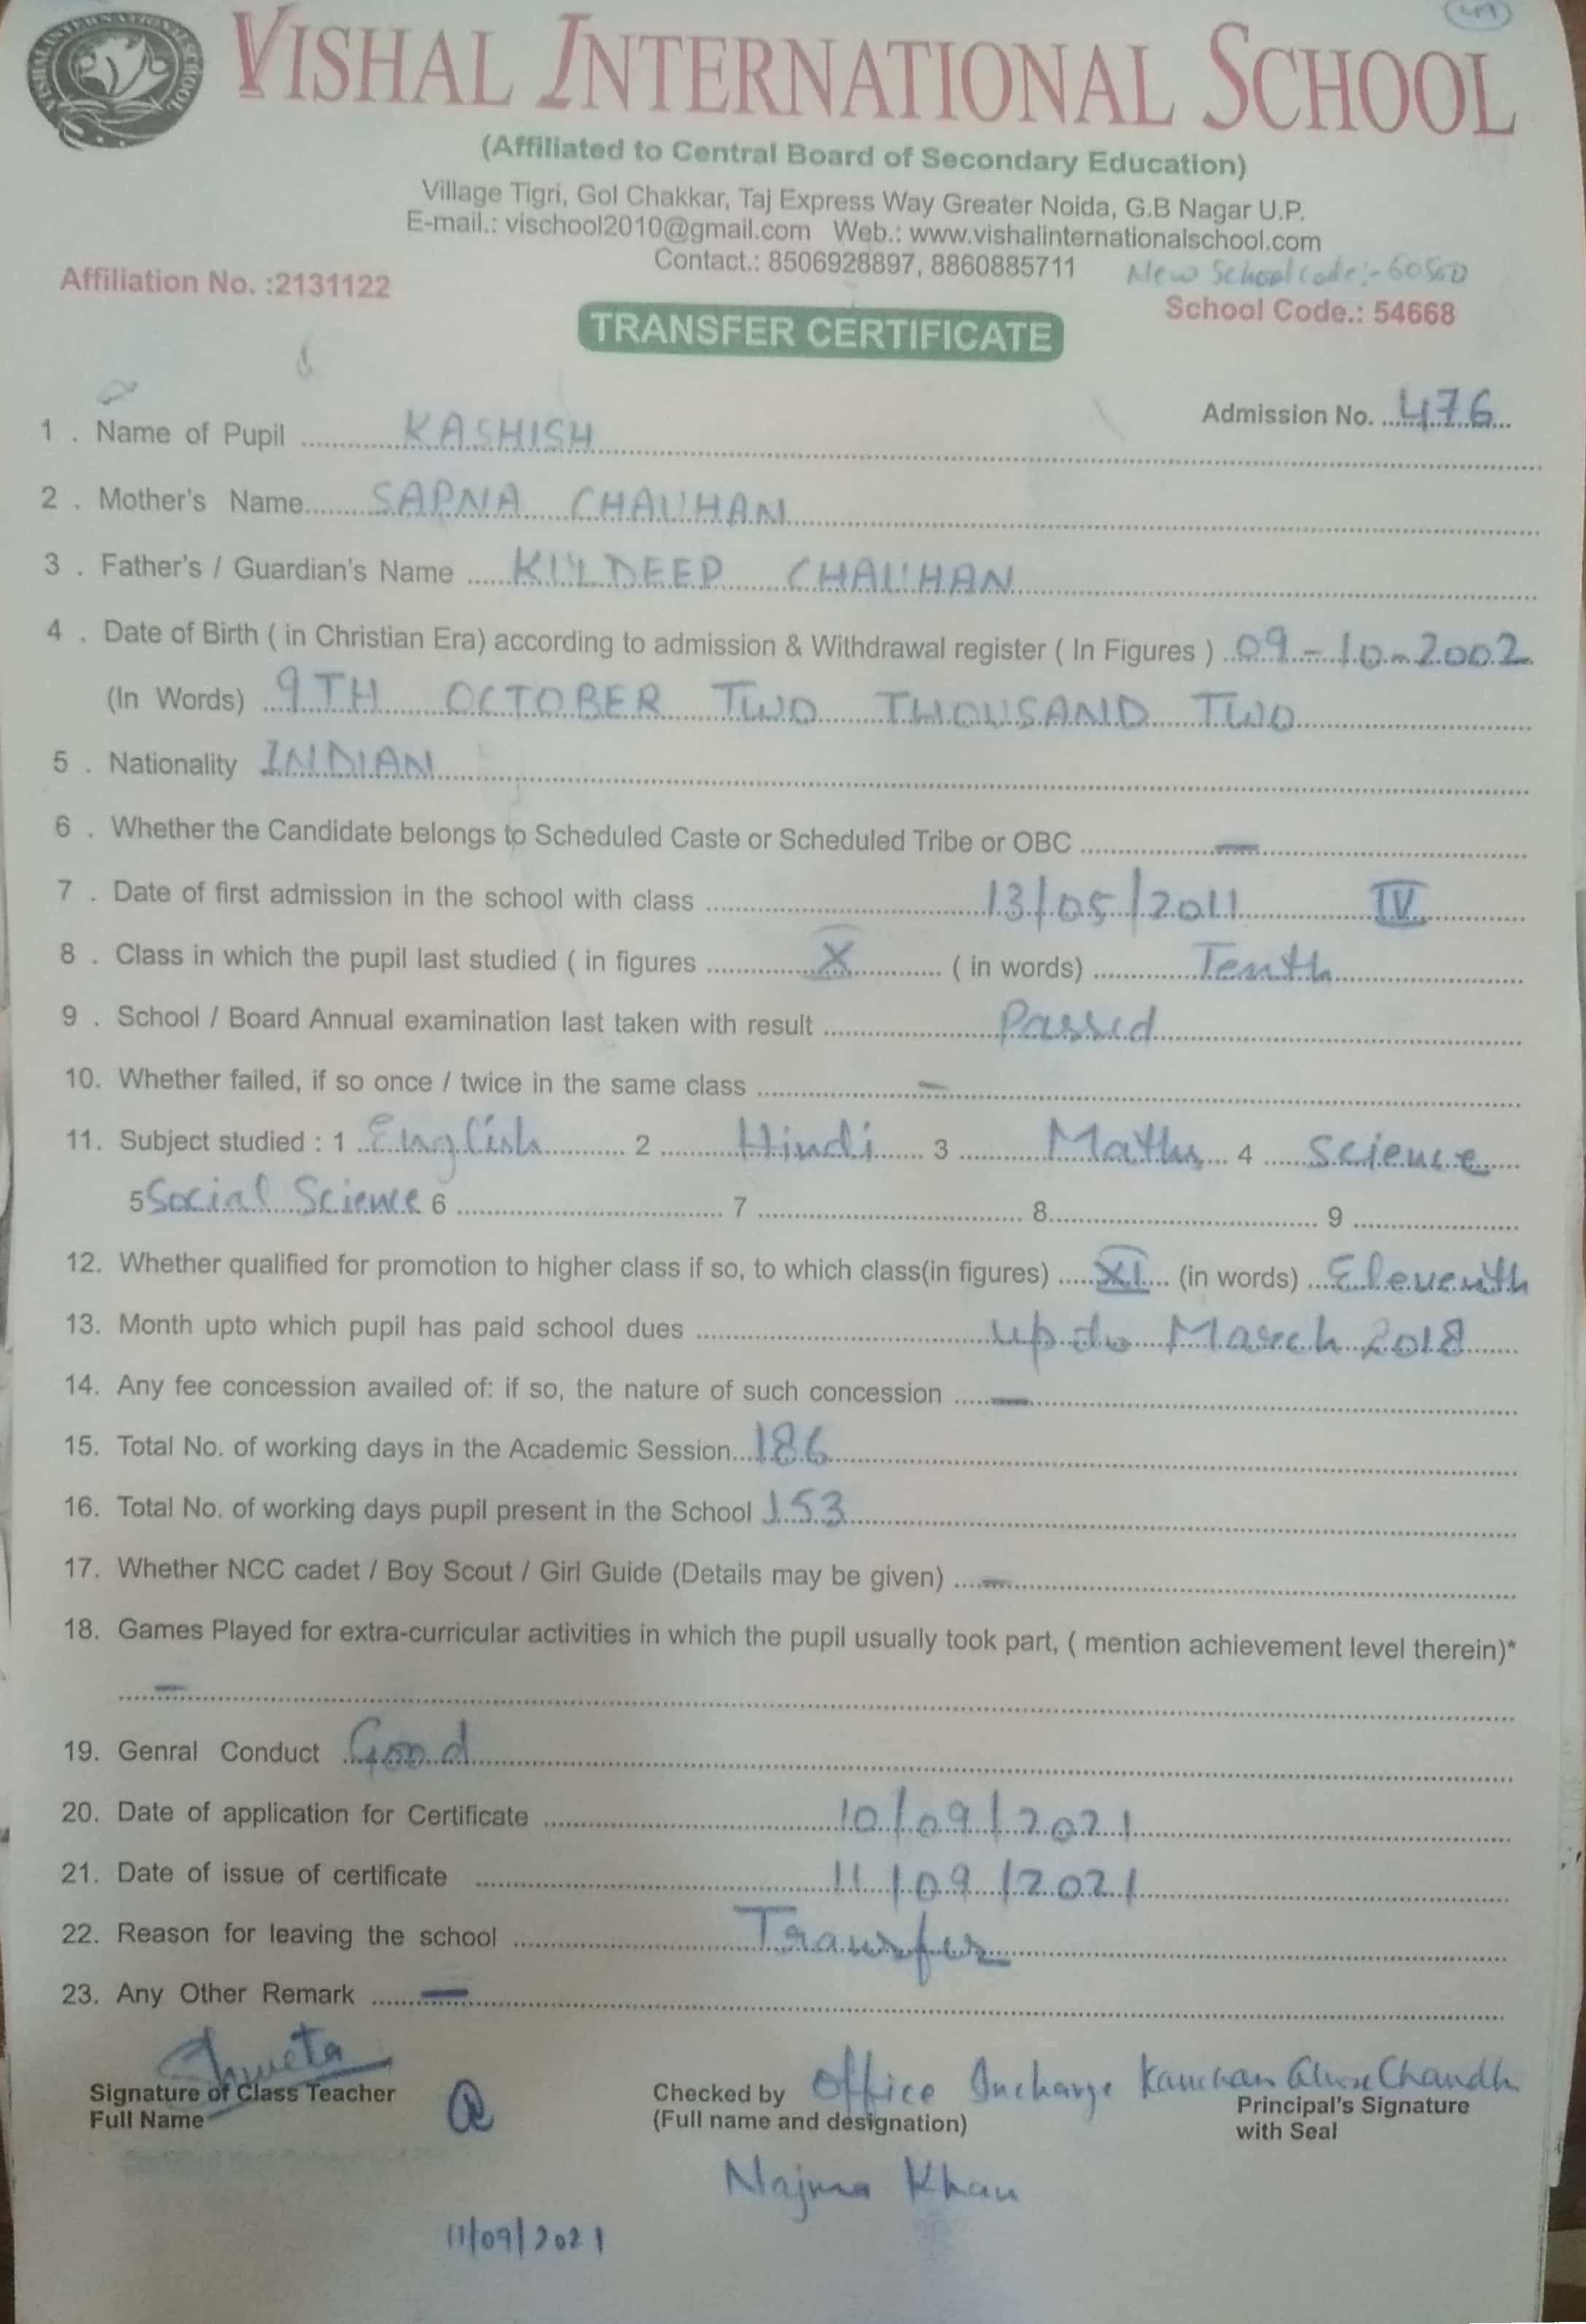 VISHAL INTERNATIONAL SCHOOL
(Affiliated to Central Board of Secondary Education)
Village Tigri, Gol Chakkar, Taj Express Way Greater Noida, G.B Nagar U.P.
E-mail.: vischool2010@gmail.com Web.: www.vishalinternationalschool.com
Contact.: 8506928897, 8860885711 New School code:-
Affiliation No. :2131122 School Code.: 54668
TRANSFER CERTIFICATE
Admission No. 476
1 . Name of Pupil KASHISH
2 . Mother's Name SAPNA CHAUHAN
3 . Father's / Guardian's Name KULDEEP CHAUHAN
4 . Date of Birth ( in Christian Era) according to admission & Withdrawal register ( In Figures ) 09-10-2002
(In Words) 9TH OCTOBER TWO THOUSAND TWO
5 . Nationality INDIAN
6 . Whether the Candidate belongs to Scheduled Caste or Scheduled Tribe or OBC —
7 . Date of first admission in the school with class 13/05/2011 IV
8 . Class in which the pupil last studied ( in figures X ( in words) Tenth
9 . School / Board Annual examination last taken with result Passed
10. Whether failed, if so once / twice in the same class —
11. Subject studied : 1 English 2 Hindi 3 Maths 4 Science
5 Social Science 6 7 8 9
12. Whether qualified for promotion to higher class if so, to which class(in figures) XI (in words) Eleventh
13. Month upto which pupil has paid school dues up to March 2018
14. Any fee concession availed of: if so, the nature of such concession —
15. Total No. of working days in the Academic Session 186
16. Total No. of working days pupil present in the School 153
17. Whether NCC cadet / Boy Scout / Girl Guide (Details may be given) —
18. Games Played for extra-curricular activities in which the pupil usually took part, ( mention achievement level therein)*
—
19. Genral Conduct Good
20. Date of application for Certificate 10/09/2021
21. Date of issue of certificate 11/09/2021
22. Reason for leaving the school Transfer
23. Any Other Remark —
Shweta
Signature of Class Teacher
Full Name
Checked by Office Incharge
(Full name and designation)
Najma Khan
Kanchan
Principal's Signature
with Seal
11/09/2021